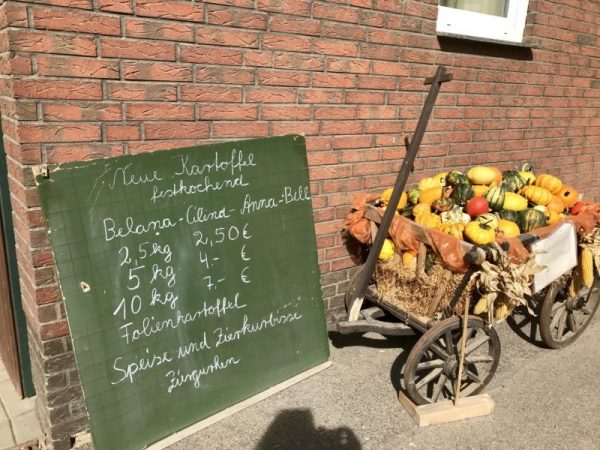 Neue Kartoffel
festkochend
Belana-Cilena-Anna-Bell
2,5kg 2,50€
5kg 4.- €
10kg 7.- €
Folienkartoffel
Speise und Zierkürbisse
Ziergurken